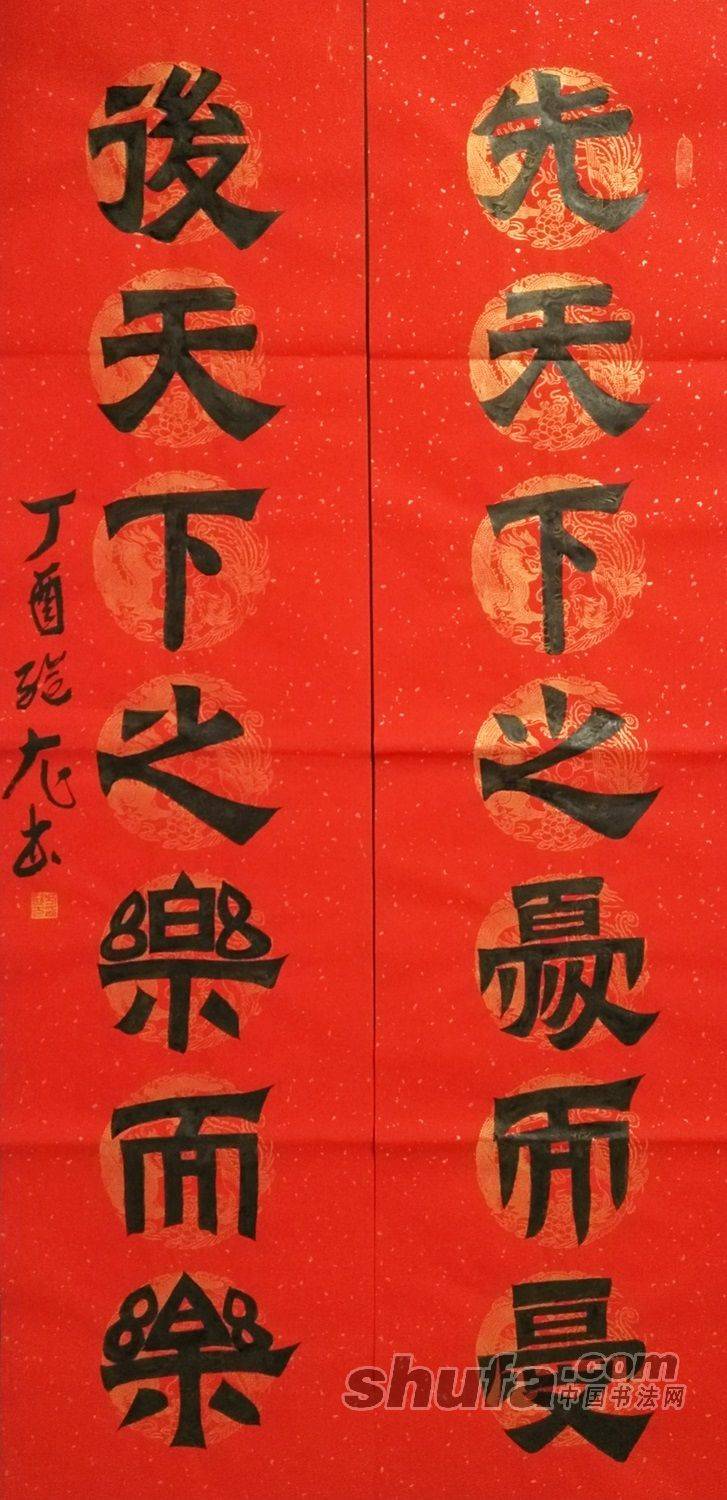 先天下之憂而憂
後天下之樂而樂
丁酉
書
shufa.com
中国书法网